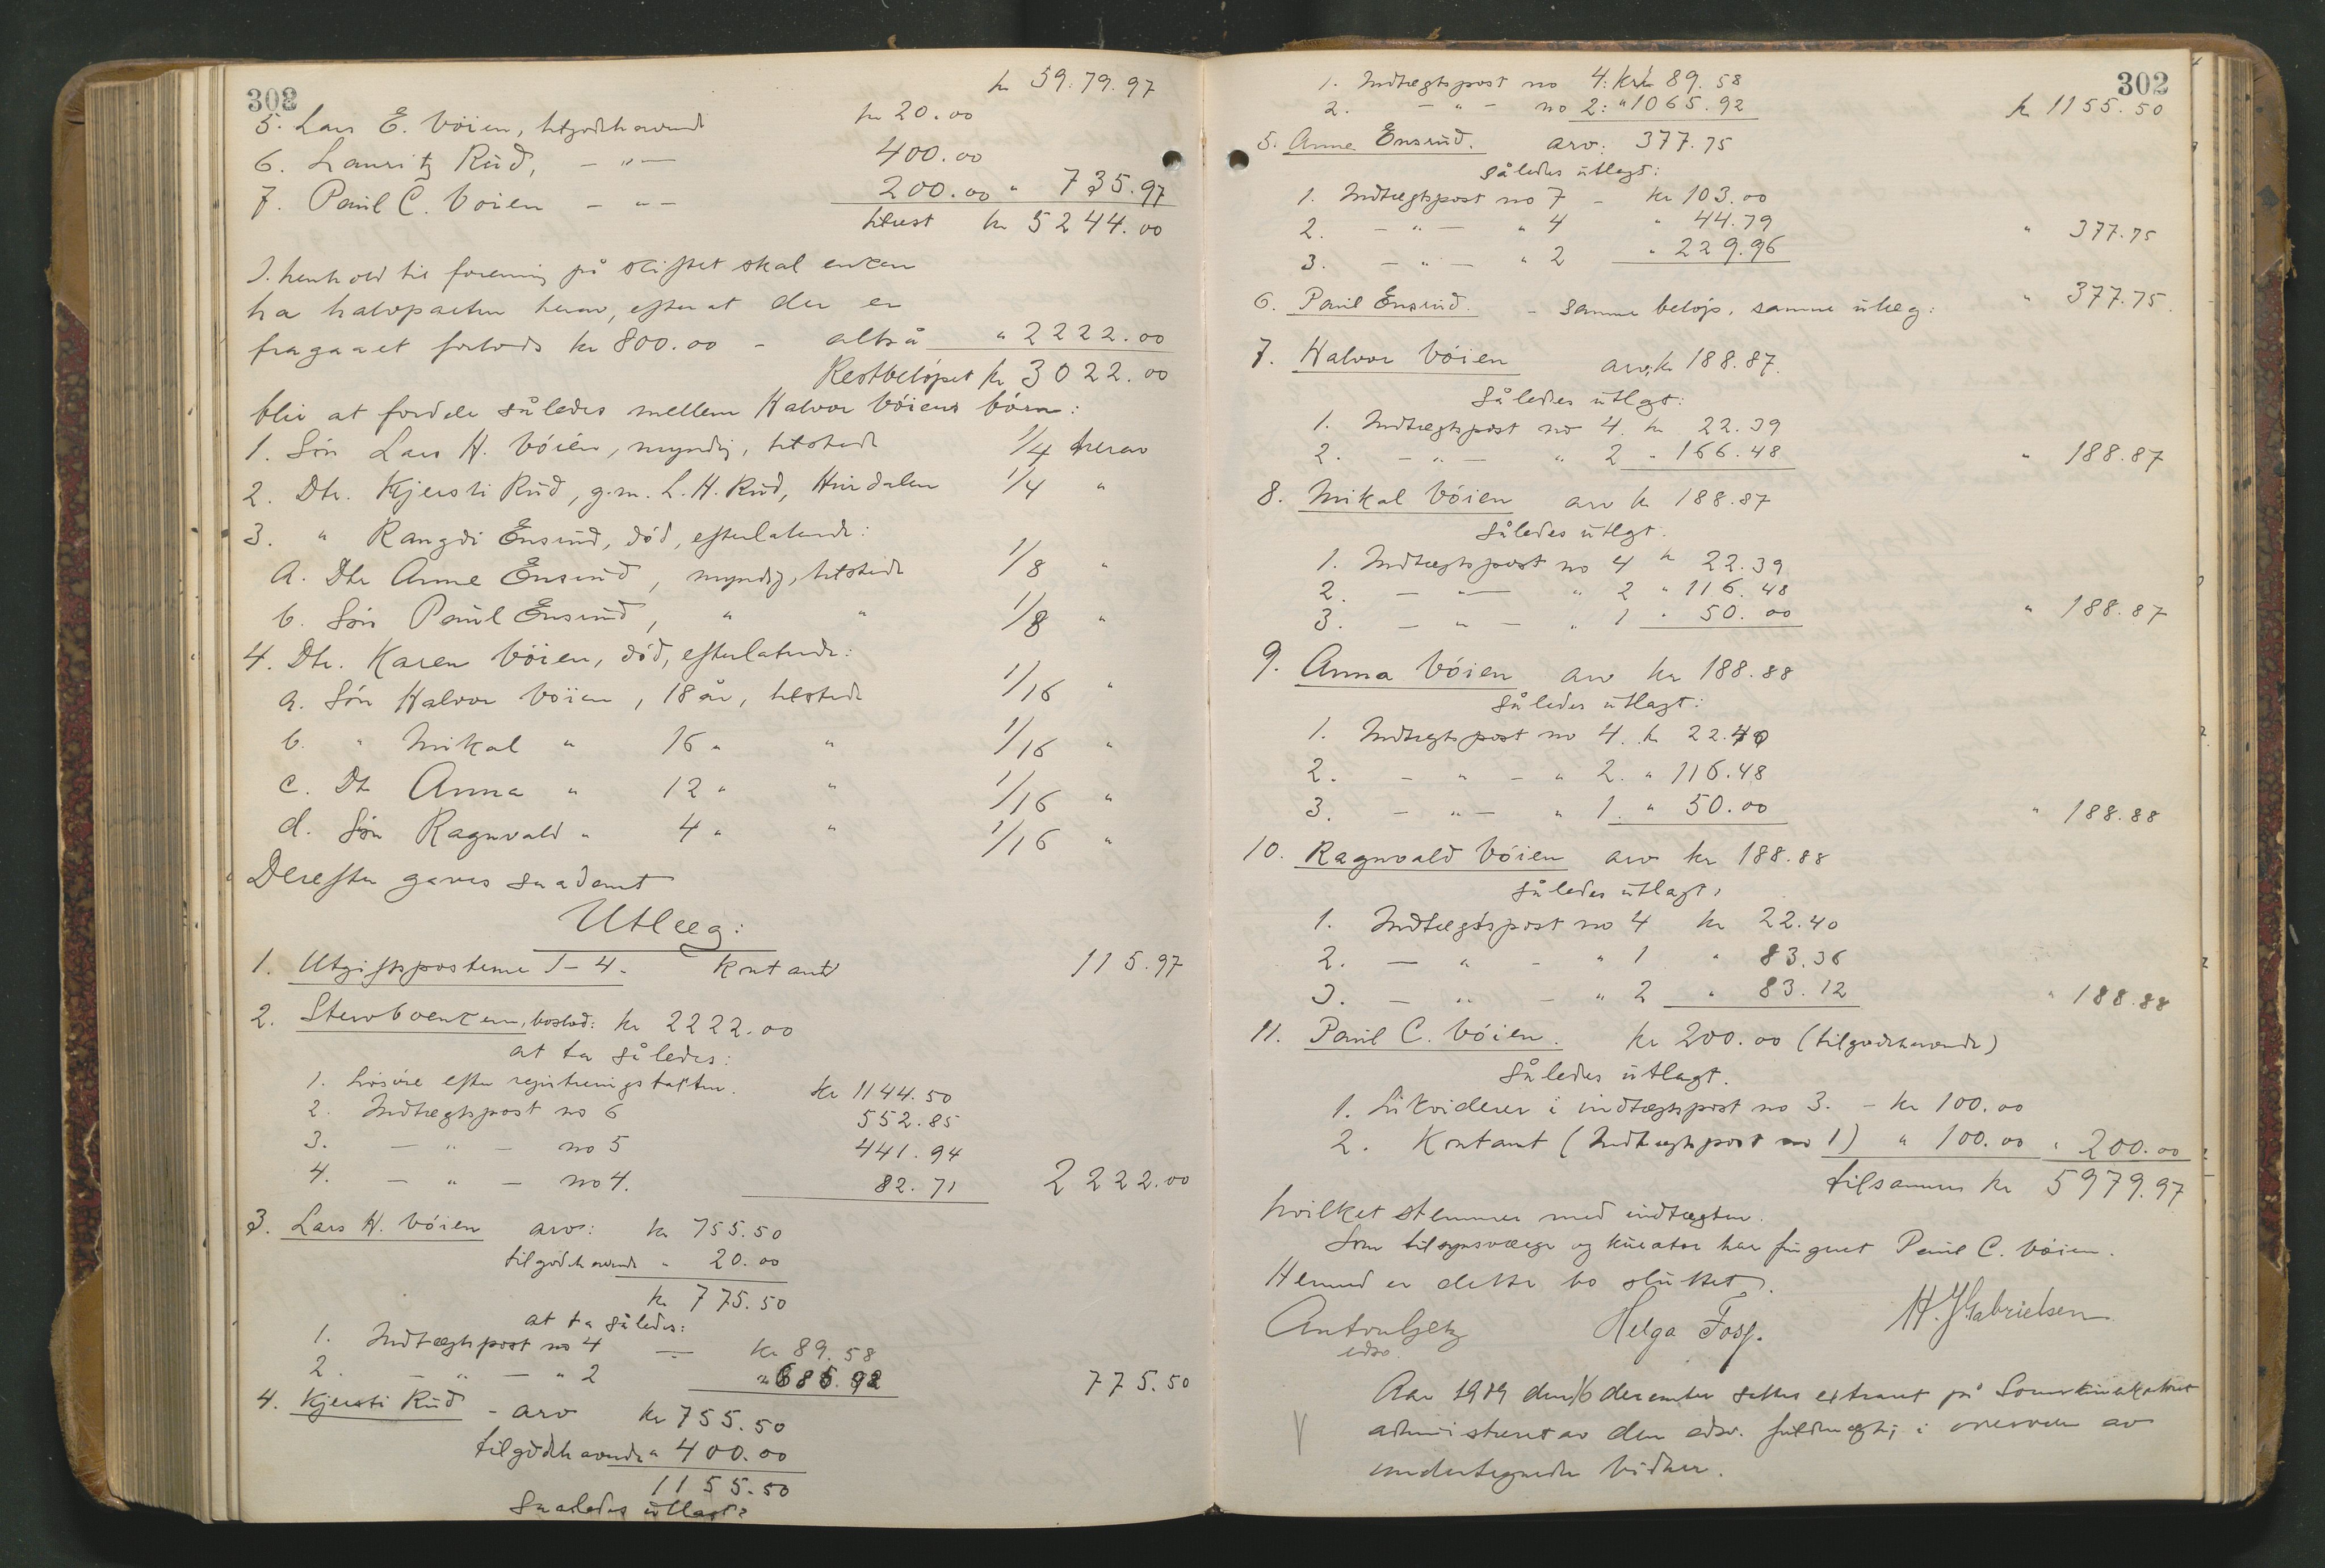 302
kr 59.79.97
5. Lars E. Vöien, tilgodehavende kr 20.00
6. Lauritz Rud, — " — 400.00
7. Paul C. Vöien — " — 200.00 " 735.97
tilrest kr 5244.00
I henhold til forening på skiftet skal enken
ha halvparten herav, efterat der er
fragaaet forlods kr 800.00 - altså " 2222.00
Restbelöpet kr 3022.00
blir at fordele således mellem Halvor Vöiens börn:
1. Sön Lars H. Vöien, myndig, tilstede 1/4 herav
2. Dtr. Kjersti Rud, g.m. L.H. Rud, Hurdalen 1/4 "
3. " Rangdi Ensrud, död, efterlatende:
a. Dtr Anne Ensrud, myndig, tilstede 1/8 "
b. Sön Paul Ensrud, " " 1/8 "
4. Dtr. Karen Vöien, död, efterlatende:
a. Sön Halvor Vöien, 18 år, tilstede 1/16 "
b. " Mikal " 16 " " 1/16 "
c. Dtr Anna " 12 " " 1/16 "
d. Sön Ragnvald " 4 " " 1/16 "
Derefter gaves saadant
Utlæg:
1. Utgiftsposterne 1-4. Kontant 115.97
2. Stervboenken, boslod: kr 2222.00
at ta således:
1. Lösöre efter registreringstakten. kr 1144.50
2. Indtægtspost no 6 552.85
3. — " — no 5 441.94
4. — " — no 4. 82.71 2222.00
3. Lars H. Vöien arv: kr 755.50
tilgodehavende " 20.00
kr 775.50
at ta således:
1. Indtægtspost no 4 — kr 89.58
2. — " — " 2 " 685.92 775.50
4. Kjersti Rud - arv kr 755.50
tilgodehavende " 400.00
1155.50
Saaledes utlagt:
302
1. Indtægtspost no 4: kr 89.58
2. — " — no 2: " 1065.92 kr 1155.50
5. Anne Ensrud. arv: 377.75
således utlagt:
1. Indtægtspost no 7 - kr 103.00
2. — " — " 4 " 44.79
3. — " — " 2 " 229.96 " 377.75
6. Paul Ensrud. - samme belöp, samme utlæg: " 377.75
7. Halvor Vöien arv: kr 188.87.
Således utlgt:
1. Indtægtspost no 4. kr 22.39
2. — " — " 2 " 166.48 " 188.87
8. Mikal Vöien arv kr 188.87
Således utlgt.
1. Indtægtspost no 4 kr 22.39
2. — " — " 2 " 116.48
3. — " — " 1 " 50.00 " 188.87
9. Anna Vöien arv kr 188.88
Således utlagt:
1. Indtægtspost no 4. kr 22.40
2. — " — " 2. " 116.48
3. — " — " 1. " 50.00 " 188.88
10. Ragnvald Vöien arv kr 188.88
således utlagt:
1. Indtægtspost no 4 kr 22.40
2. — " — " 1 " 83.36
3. — " — " 2 " 83.12 " 188.88
11. Paul C. Vöien. kr 200.00 (tilgodehavende)
Således utlagt.
1. Likviderer i indtægtspost no 3. - kr 100.00
2. Kontant (Indtægtspost no 1) " 100.00 " 200.00
tilsammen kr 5979.97
hvilket stemmer med indtægten.
Som tilsynsværge og kurator har fungeret Paul C. Vöien.
Hermed er dette bo sluttet.
Anton Getz Helga Foss. H. J. Gabrielsen
edsv.
Aar 1919 den 16 december sattes extraret på Sorenskriverkontoret
administrert av den edsv. fuldmægtig i nærvær av
undertegnede vidner.